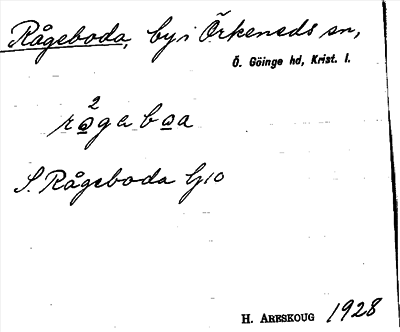 Rågeboda, by i Örkeneds sn,
Ö. Göinge hd, Krist. l.
2
rågaboa
S. Rågeboda Gj10
H. Areskoug 1928